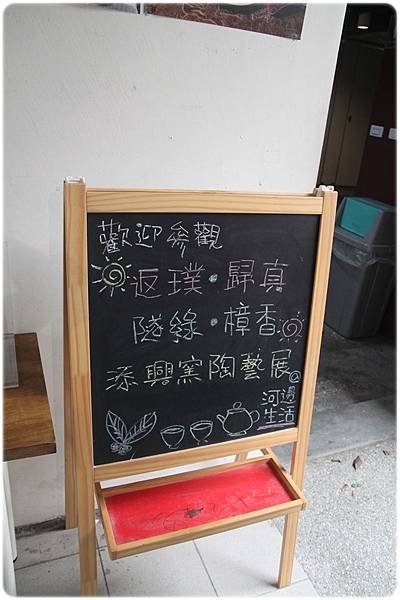 歡迎參觀
返璞·歸真
隧緣·樟香
添興窯陶藝展@
河邊
生活